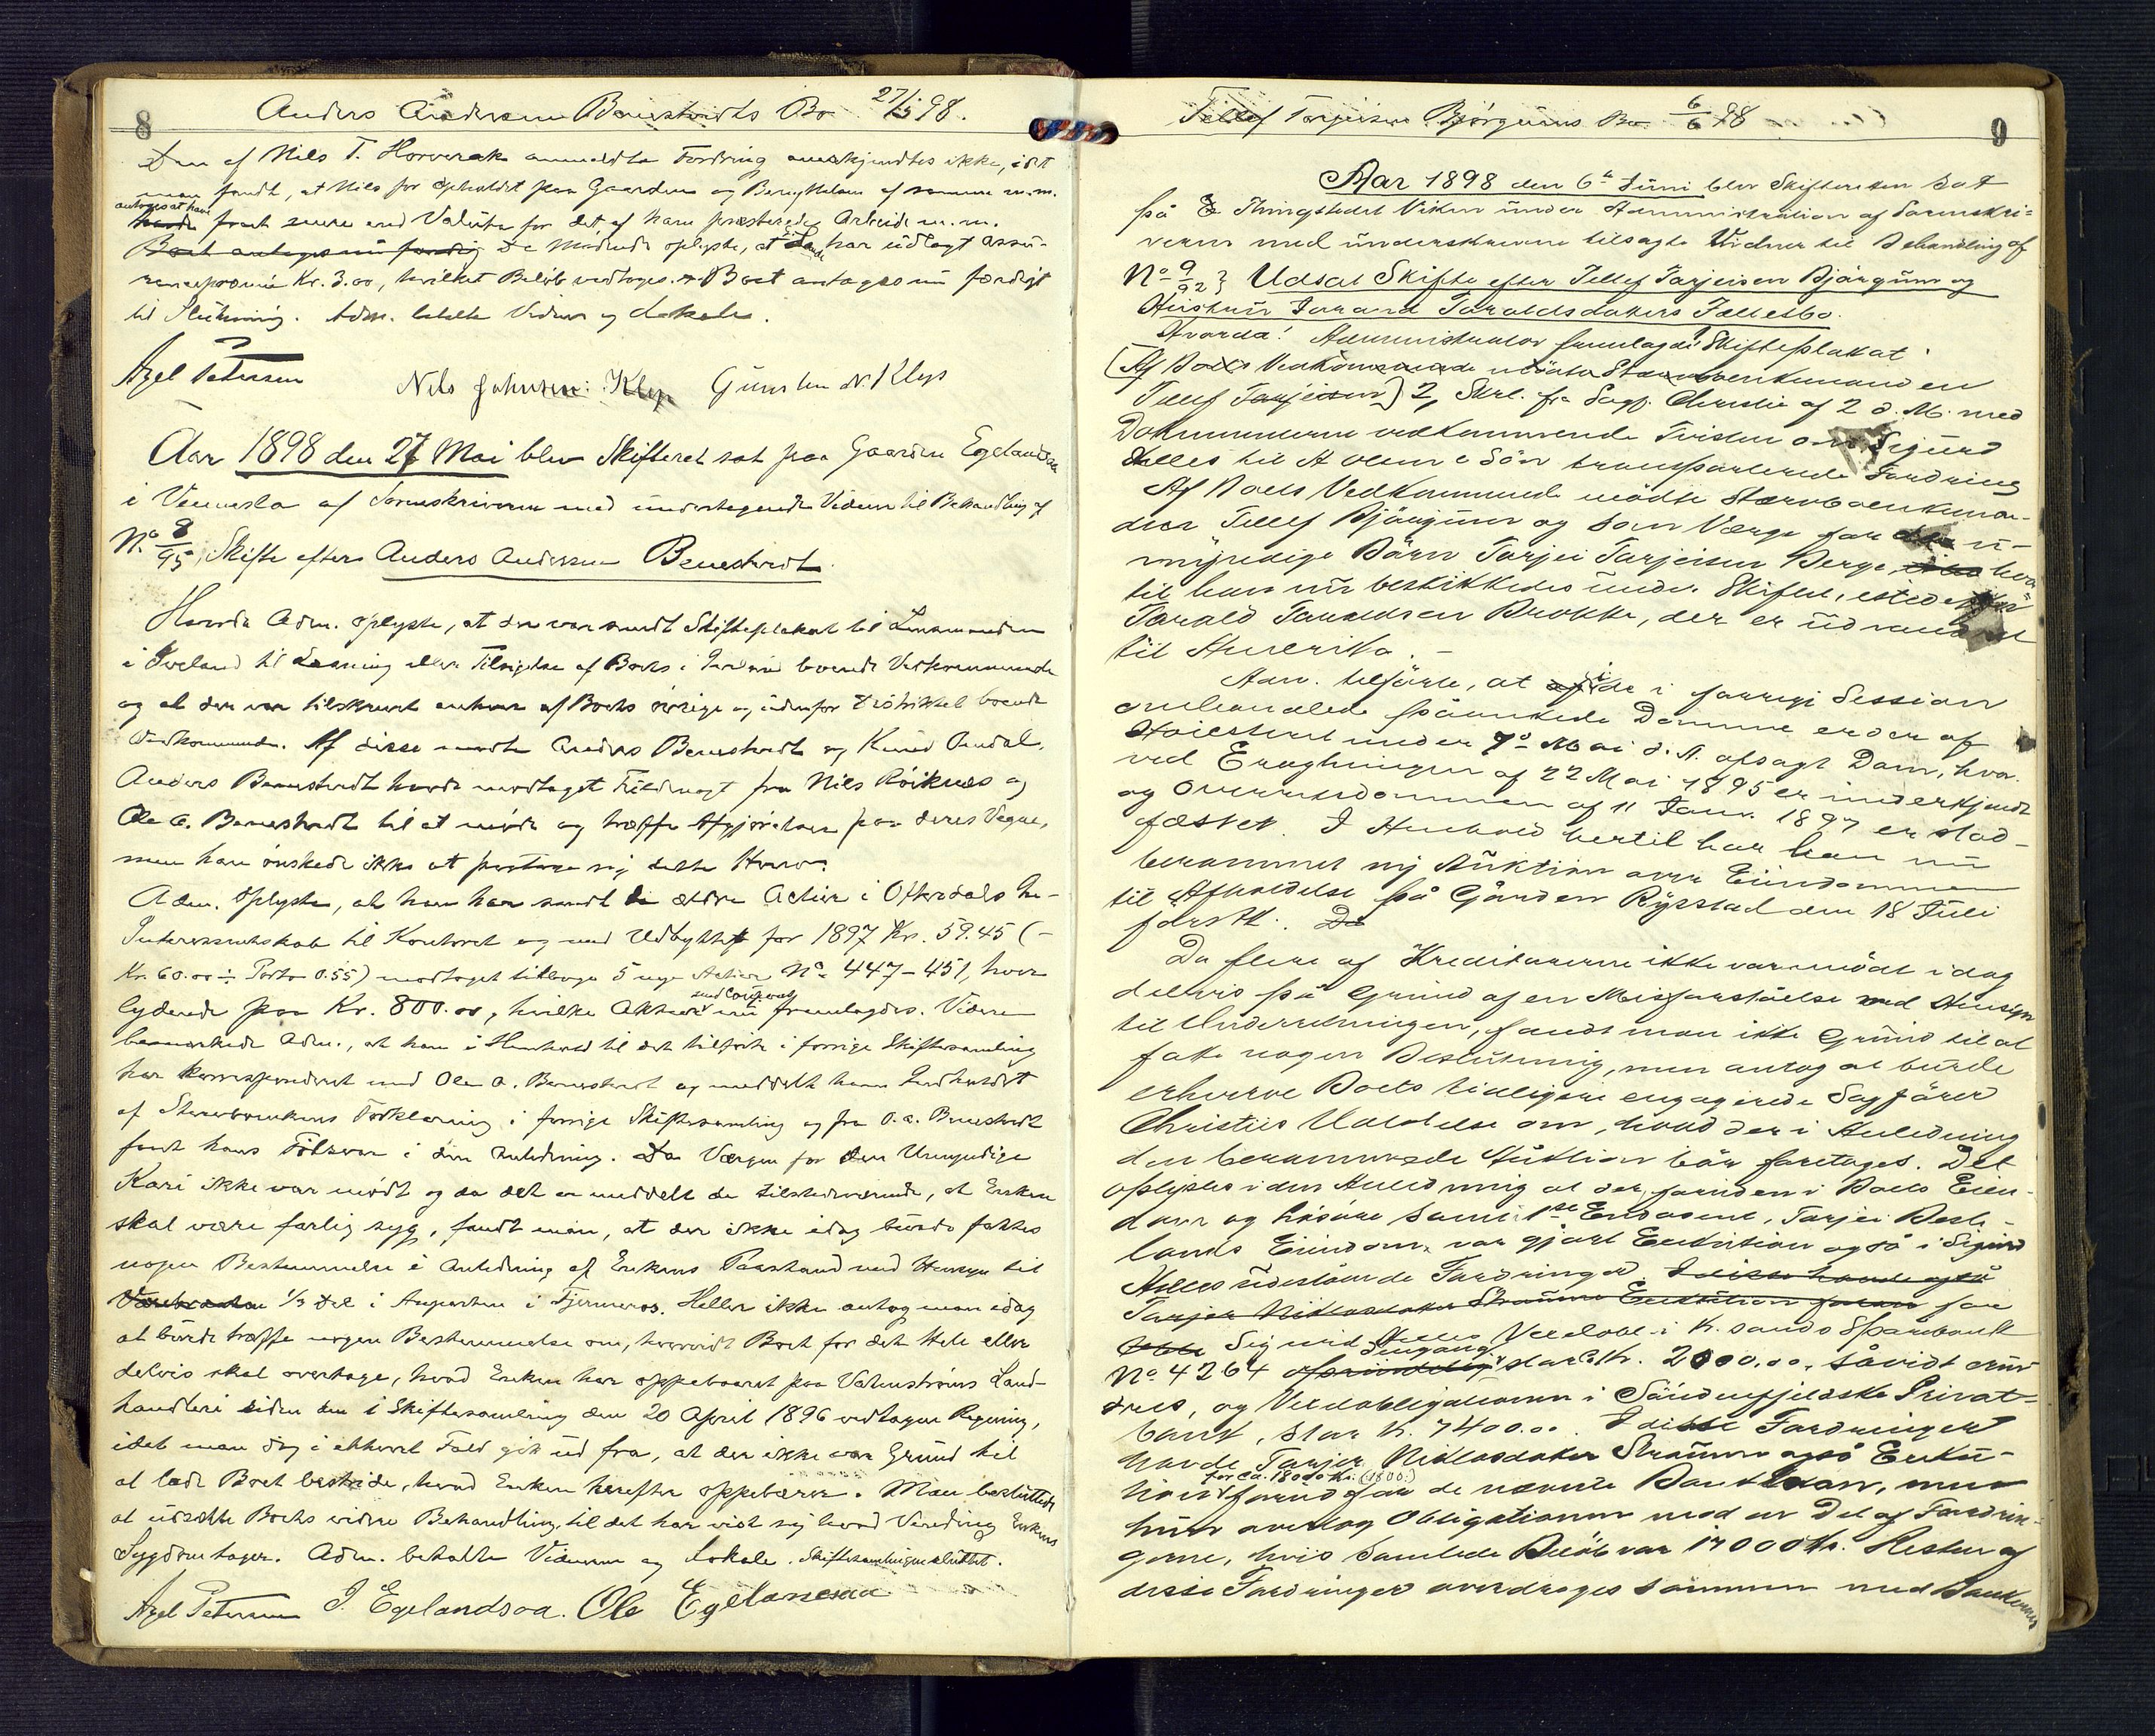 8
Anders Andersen Beuestvedts Bo 27/5 98.
Den af Nils T. Horverak anmeldte Fordring anerkjendtes ikke, idet
man fandt, at Nils for Opholdet paa Gaarden og Benyttelsen af samme m.m.
antoges at have
havde faaet mere end Valuta for det af ham præsterede Arbeide m.m.
Boet antages nu færdig De mødende oplyste, at har udlagt assu-
rancepræmie Kr. 3.00, hvilket Beløb vedtoges. Boet antages nu færdigt
til Slutning. Adm. betalte Vidner og Lokale.
Axel Petersen Nils Johnsen Klep Gunsten N. Klep
Aar 1898 den 27 Mai blev Skifteret sat paa Gaarden Egelandsaa
i Vennesla af Sorenskriveren med undertegnede Vidner til Behandling af
No. 8/95, Skifte efter Anders Andersen Beuestvedt.
Hvorda Adm. oplyste, at der var sendt Skifteplakat til Lensmanden
i Iveland til Læsning eller Tilsigelse af Boets i Iveland boende Vedkommende
og at der var tilskrevet enhver af Boets øvrige og udenfor Distriktet boende
Vedkommende. Af disse mødte Anders Beuestvedt og Knud Omdal.
Anders Beuestvedt havde modtaget Fuldmagt fra Nils Röiknes og
Ole A. Beuestvedt til at møde og træffe Afgjørelser paa deres Vegne,
men han ønskede ikke at paatage sig dette Hverv.
Adm. oplyste, at han har sendt de ældre Actier i Otteraaens In-
Interessentskab til Kontoret og med Udbytte for 1897 Kr. 59.45 (-
Kr. 60.00 ÷ Porto 0.55) modtaget tilbage 5 nye Actier No. 447-451, hver
med Coupons
lydende paa Kr. 800.00, hvilke Aktier nu fremlagdes. Videre
bemærkede Adm., at han i Henhold til det tilførte i forrige Skiftesamling
har korresponderet med Ole A. Beuestvedt og meddelt ham Indholdet
af Stervboenkens Forklaring i forrige Skiftesamling og fra O. A. Beuestvedt
faaet hans Tilsvar i den Anledning. Da Værgen for den Umyndige
Kari ikke var mødt og da det er meddelt de tilstedeværende, at Enken
skal være farlig syg, fandt man, at der ikke idag burde fattes
nogen Bestemmelse i Anledning af Enkens Paastand med Hensyn til
1/3 Del i Aaparten i Fjermeros. Heller ikke antog man idag
at burde træffe nogen Bestemmelse om, hvorvidt Boet for det Hele eller
delvis skal overtage, hvad Enken har oppebaaret paa Vatnestrøms Land-
handleri siden den i Skiftesamling den 20 April 1896 vedtagne Regning,
idet man dog i ethvert Fald gik ud fra, at der ikke var Grund til
at lade Boet bestride, hvad Enken herefter oppebærer. Man besluttede
at udsætte Boets videre Behandling, til det har vist sig hvad Vending Enkens
Sygdom tager. Adm. betalte Vidnerne og Lokale. Skiftesamlingen sluttet.
Axel Petersen J. Egelandsaa. Ole Egelandsaa
9
Tellef Torjeisen Bjørgums Bo 6/6 98
Aar 1898 den 6te Juni blev Skifteretten sat
på Thingstedet Viken under Administration af Sorenskri-
veren med underskrevne tilsagte Vidner til Behandling af
No 9/92} Udsat Skifte efter Tellef Tarjeisen Bjørgum og
Hustru Jorand Taraldsdatters Fællesbo.
Hvorda! Administrator fremlagde! Skifteplakat
(Af Boets Vedkommende mødte Stervboenkemanden
Tellef Tarjeisen) 2, Skrl. fra Sagf. Christie af 2 d. M. med
Dokumenterne vedkommende Tvisten om Sigurd
Helles til A Olsen & Søn transporterede Fordring
Af Boets Vedkommende mødte Stervboenkeman-
den Tellef Bjørgum og som Værge for u-
myndige Børn Tarjei Tarjeisen Berge, hvor
til han nu beskikkedes under Skiftet, istedetfor
Tarald Taraldsen Brokke, der er udvandret
til Amerika. -
Adm. tilførte, at i de i forrige Session
omhandlede påankede Domme er der af
Høiesteret under 7de Mai d. A. afsagt Dom, hvor-
ved Eragtningen af 22 Mai 1895 er underkjendt
og Overretsdommen af 11 Janr. 1897 er stad-
fæstet. I Henhold hertil har han nu
berammet ny Auktion over Eiendommen
til Afholdelse på Gården Rysstad den 18 Juli
førstk. Da
Da flere af Kreditorerne ikke var mødt idag
delvis på Grund af en Misforståelse med Hensyn
til Underretningen, fandt man ikke Grund til at
fatte nogen Beslutning, men antog at burde
erhverve Boets tidligere engagerede Sagfører
Christies Udtalelse om, hvad der i Anledning
den berammede Auktion bør foretages. Det
oplystes i den Anledning at der, foruden i Boets Eien-
dom og Løsøre samt 1ste Endossent, Tarjei Beste-
lands Eiendom, var gjort Exekution også i Sigurd
Helles udestående Fordringer I disse havde også
Tarjer Niklosdatter Straume Exekution foran for
Sigurd Helles Vexelobl. i K.sands Sparebank
Indgang
No 4264 oprindelig stor Kr. 2000.00, såvidt erin-
dres, og Vexelobligationen i Søndenfjeldske Privat-
bank, stor Kr. 7400.00. I disse Fordringer
havde Tarjer Niklosdatter Straume også Exeku-
for ca. 1800 Kr. (1800:)
tion forud for de nævnte Banklaan, men
hun overtog Obligationen mod en Del af Fordrin-
gerne, hvis samlede Beløb var 17000 Kr. Resten af
disse Fordringer overdroges sammen med Bankernes